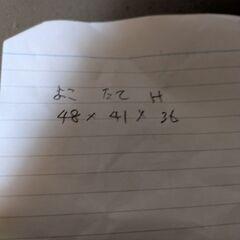 よこ たて H
48 × 41 × 36